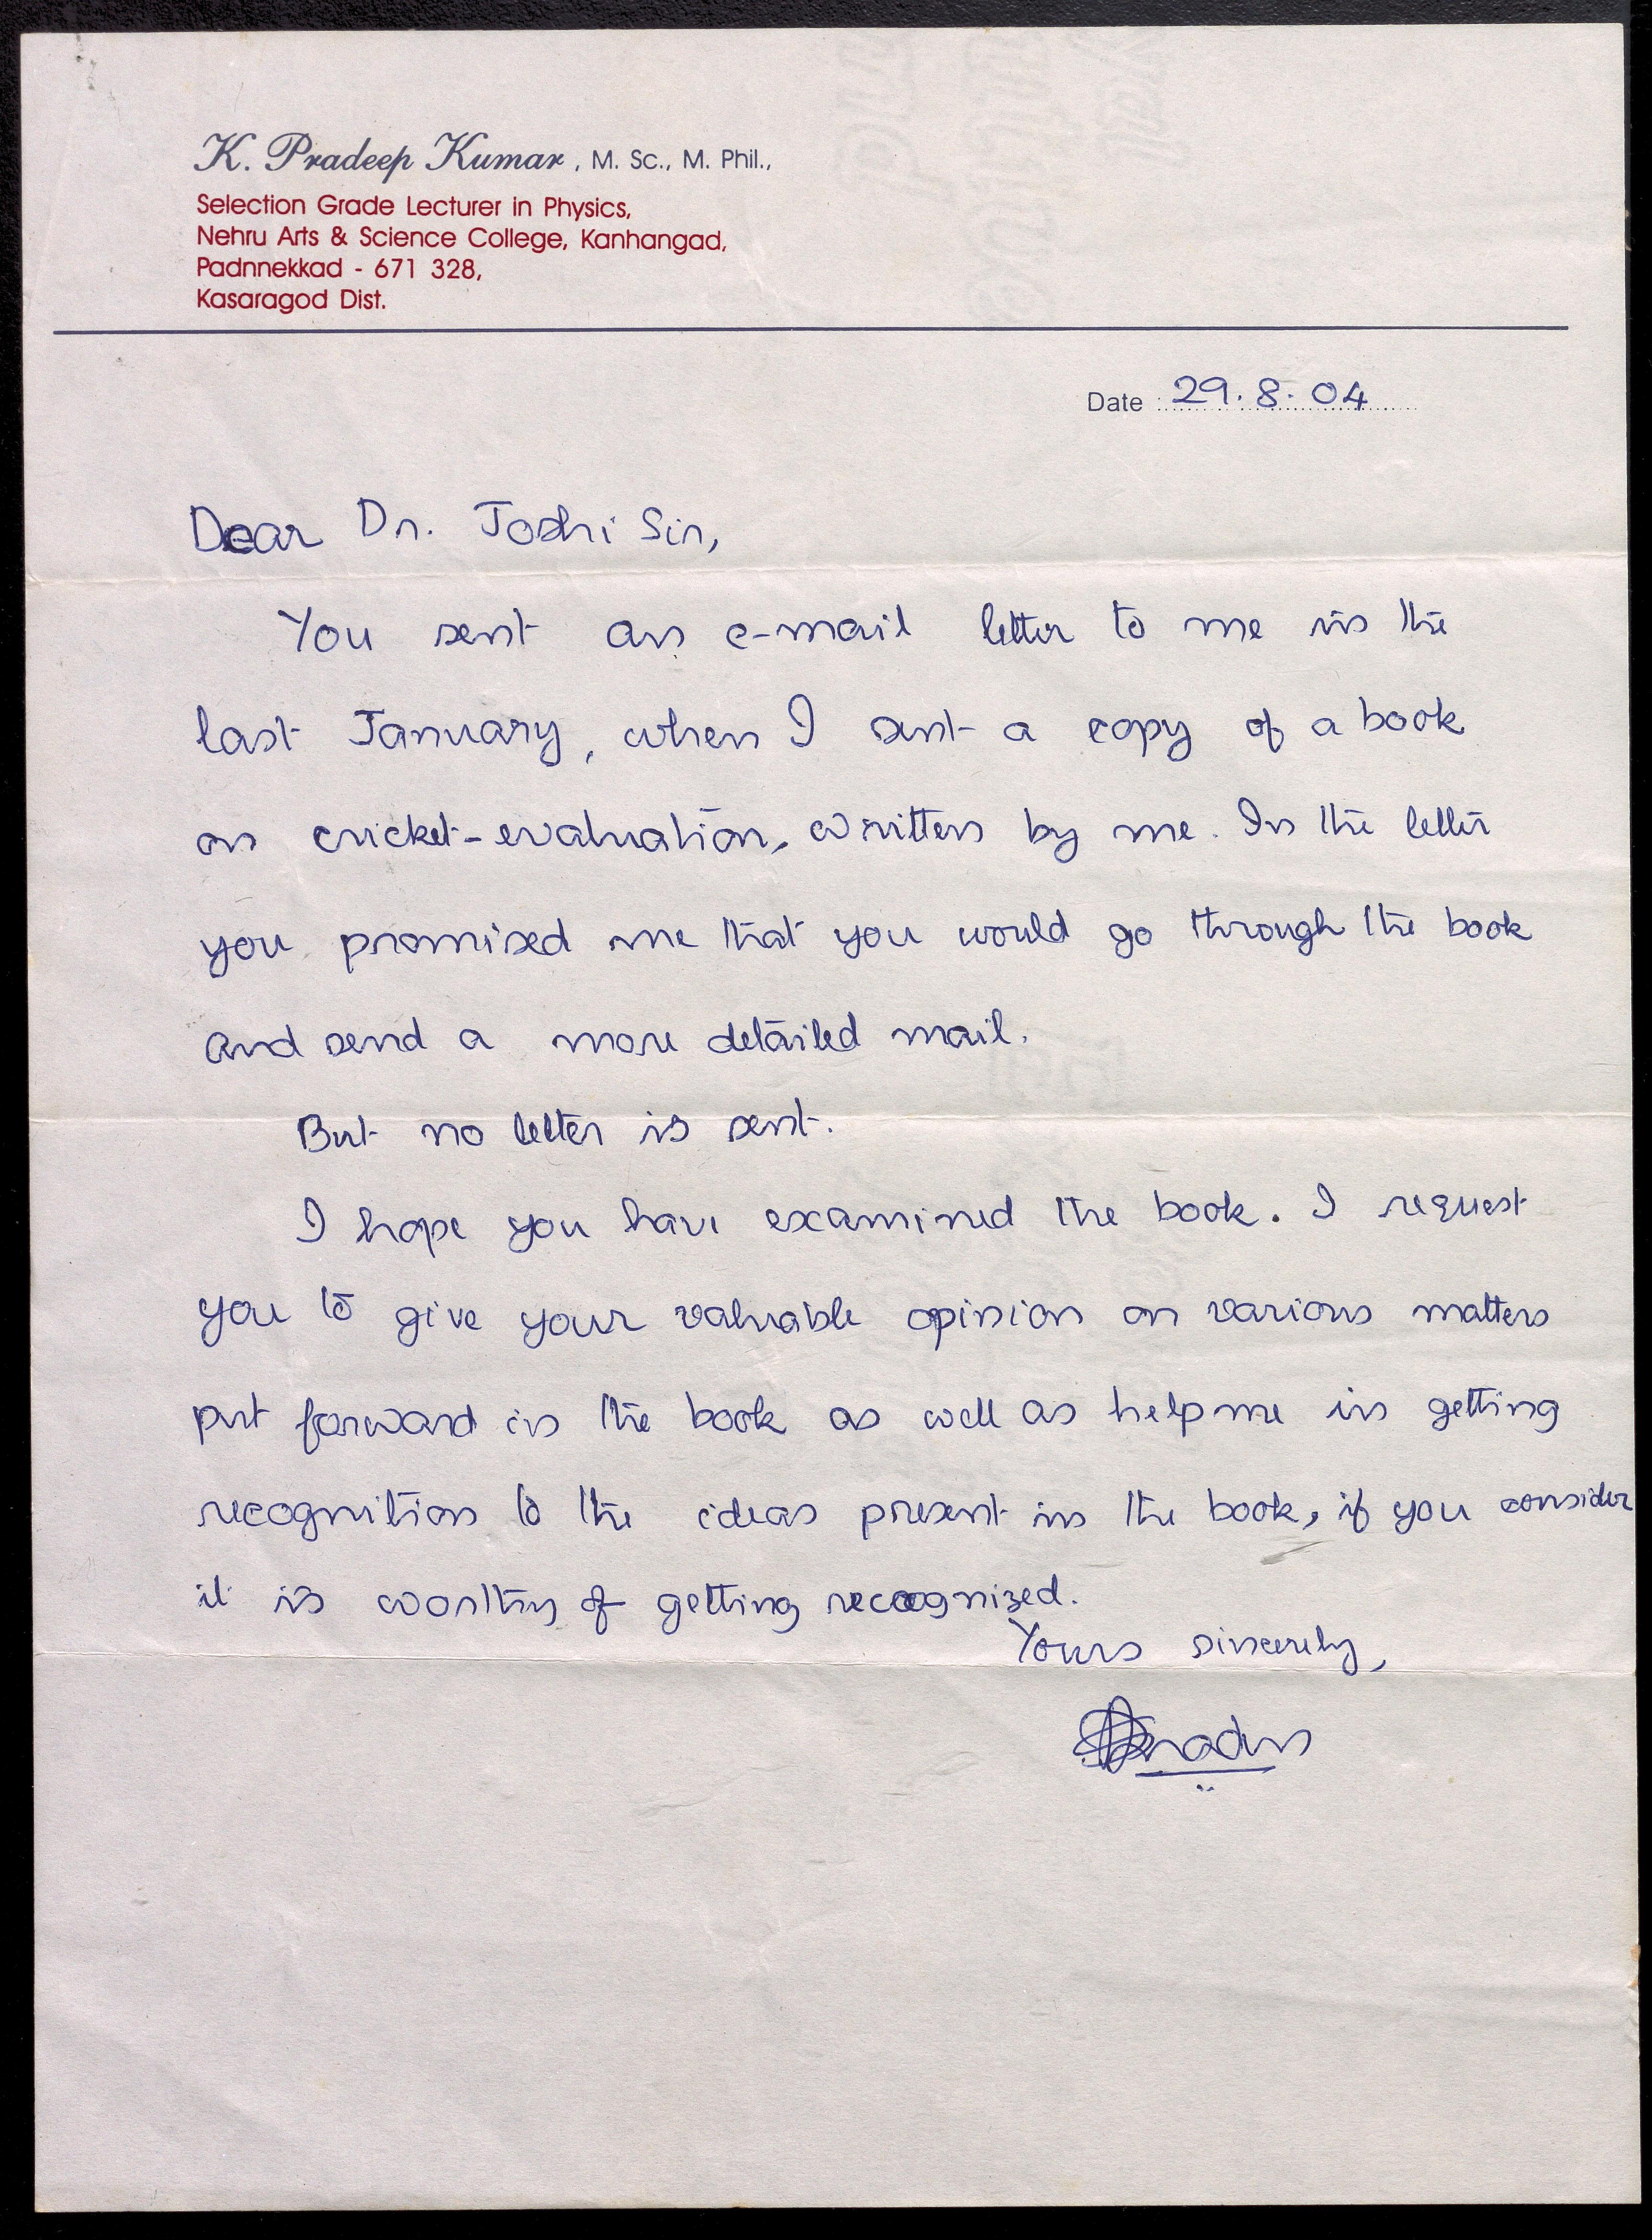 K. Pradeep Kumar, M. Sc., M. Phil.,
Selection Grade Lecturer in Physics,
Nehru Arts & Science College, Kanhangad,
Padnnekkad - 671 328,
Kasaragod Dist.
Date : 29.8.04
Dear Dr. Joshi Sir,
You sent an e-mail letter to me in the
last January, when I sent a copy of a book
on cricket-evaluation, written by me. In the letter
you promised me that you would go through the book
and send a more detailed mail.
But no letter is sent.
I hope you have examined the book. I request
you to give your valuable opinion on various matters
put forward in the book as well as help me in getting
recognition to the ideas present in the book, if you consider
it is worthy of getting recognized.
Yours sincerely,